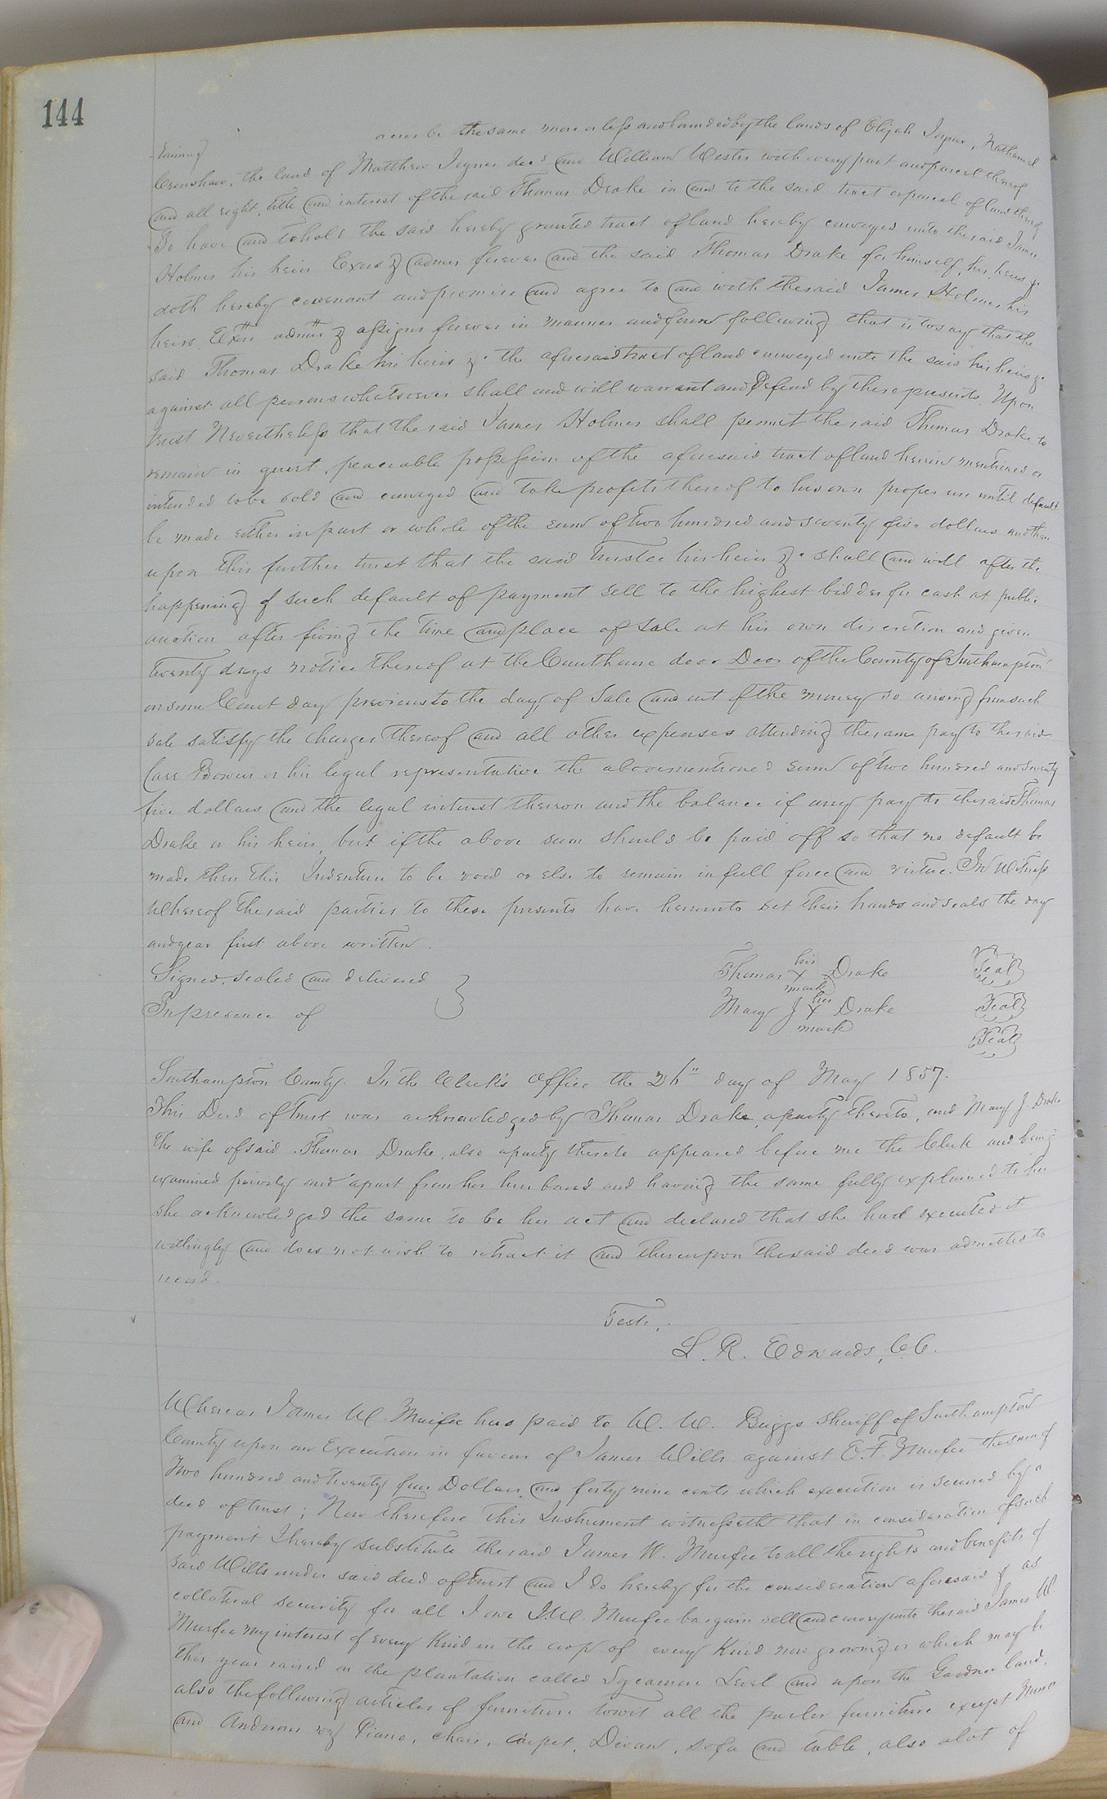 144
acres be the same more or less and bounded by the lands of Elijah Joyner, Nathaniel
Crenshaw, the land of Matthew Joyner decd and William Wester with every part and parcel thereof
and all right, title and interest of the said Thomas Drake in and to the said tract or parcel of land
To have and to hold the said hereby granted tract of land hereby conveyed unto the said James
Holmes his heirs Exers & admrs forever and the said Thomas Drake for himself, his heirs &
doth hereby covenant and promise and agree to and with the said James Holmes his
heirs admrs & assigns forever in manner and form following that is to say that the
said Thomas Drake his heirs &c the aforesaid tract of land conveyed unto the said his heirs &
against all persons whatsoever shall and will warrant and Defend by these presents. Upon
trust Nevertheless that the said James Holmes shall permit the said Thomas Drake to
remain in quiet, peaceable possession of the aforesaid tract of land herein mentioned or
intended to be sold and conveyed and take profits thereof to his own proper use until default
be made either in part or whole of the sum of two hundred and seventy five dollars and then
upon this further trust that the said trustee his heirs &c shall and will after the
happening of such default of payment sell to the highest bidder for cash at public
auction after fixing the time and place of sale at his own discretion and given
twenty days notice thereof at the Courthouse door Door of the County of Southampton
on some Court day previous to the day of Sale and out of the money so arising from such
sale satisfy the charges thereof and all other expenses attending the same pay to the said
Carr Bowers or his legal representative the abovementioned sum of two hundred and seventy
five dollars and the legal interest thereon and the balance if any pay to the said Thomas
Drake or his heirs, but if the above sum should be paid off so that no default be
made then this Indenture to be void or else to remain in full force and virtue. In Witness
Whereof the said parties to these presents have hereunto set their hands and seals the day
and year first above written.
Signed, sealed and delivered
In presence of
Thomas his X mark Drake Seal
Mary J her X mark Drake Seal
Seal
Southampton County. In the Clerk's Office the day of May 1857.
This Deed of trust was acknowledged by Thomas Drake, a party thereto, and Mary J. Drake
the wife of said Thomas Drake, also a party thereto appeared before me the Clerk and being
examined privily and apart from her husband and having the same fully explained to her
she acknowledged the same to be her act and declared that she had executed it
willingly and does not wish to retract it and thereupon the said deed was admitted to
record.
Teste,
L. R. Edwards, C.C.
Whereas James W. Murfee has paid to W. W. Briggs Sheriff of Southampton
County upon an Execution in favour of James Wills against E. F. Murfee the sum of
Two hundred and twenty four Dollars and forty nine cents which execution is secured by a
deed of trust; Now therefore this Instrument witnesseth that in consideration of such
payment I hereby substitute the said James W. Murfee to all the rights and benefits of
said Wills under said deed of trust and I do hereby for the consideration aforesaid & as
collateral security for all I owe J.W. Murfee bargain sell and convey unto the said James W.
Murfee my interest of every kind in the crop of every Kind now growing or which may be
this year raised on the plantation called Sycamore Level and upon the Gardner land.
also the following articles of furniture towit all the parlor furniture except Mirror
and Andirons Piano, chairs, carpet, Divan, sofa and table, also a lot of